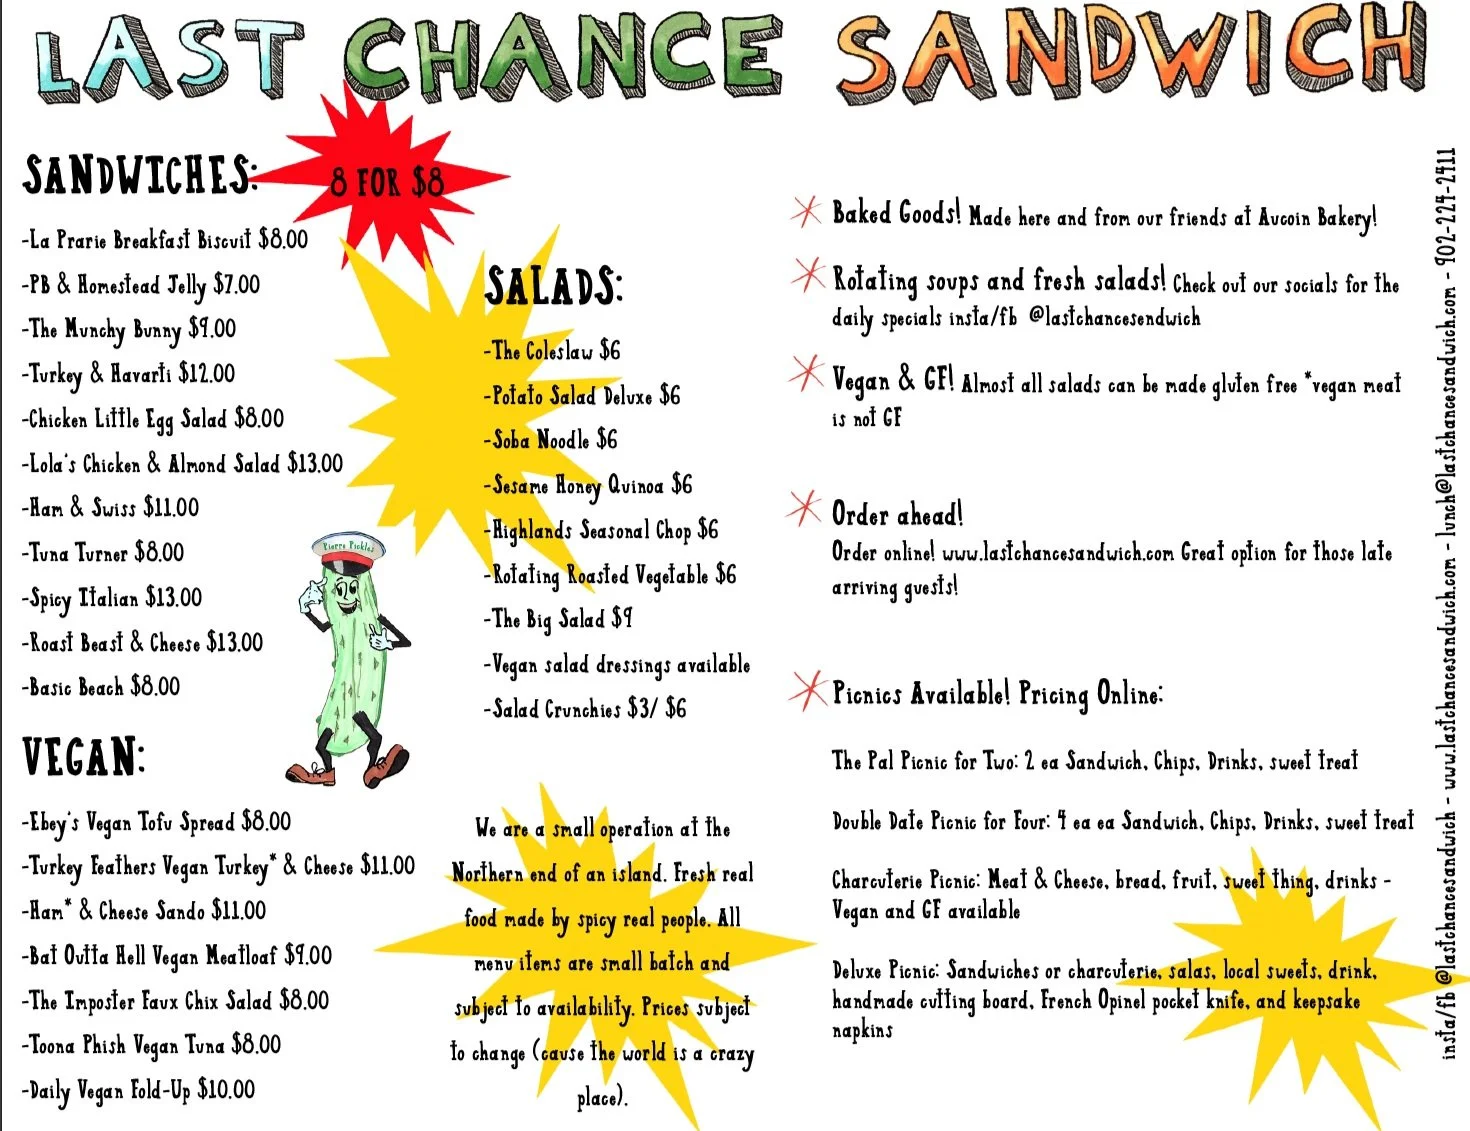 LAST CHANCE SANDWICH
SANDWICHES:
8 FOR $8
-La Prarie Breakfast Biscuit $8.00
-PB & Homestead Jelly $7.00
-The Munchy Bunny $9.00
-Turkey & Havarti $12.00
-Chicken Little Egg Salad $8.00
-Lola's Chicken & Almond Salad $13.00
-Ham & Swiss $11.00
-Tuna Turner $8.00
-Spicy Italian $13.00
-Roast Beast & Cheese $13.00
-Basic Beach $8.00
Pierre Pickles
VEGAN:
-Ebey's Vegan Tofu Spread $8.00
-Turkey Feathers Vegan Turkey* & Cheese $11.00
-Ham* & Cheese Sando $11.00
-Bat Outta Hell Vegan Meatloaf $9.00
-The Imposter Faux Chix Salad $8.00
-Toona Phish Vegan Tuna $8.00
-Daily Vegan Fold-Up $10.00
SALADS:
-The Coleslaw $6
-Potato Salad Deluxe $6
-Soba Noodle $6
-Sesame Honey Quinoa $6
-Highlands Seasonal Chop $6
-Rotating Roasted Vegetable $6
-The Big Salad $9
-Vegan salad dressings available
-Salad Crunchies $3/ $6
We are a small operation at the
Northern end of an island. Fresh real
food made by spicy real people. All
menu items are small batch and
subject to availability. Prices subject
to change (cause the world is a crazy
place).
Baked Goods! Made here and from our friends at Aucoin Bakery!
Rotating soups and fresh salads! Check out our socials for the
daily specials insta/fb @lastchancesendwich
Vegan & GF! Almost all salads can be made gluten free *vegan meat
is not GF
Order ahead!
Order online! www.lastchancesandwich.com Great option for those late
arriving guests!
Picnics Available! Pricing Online:
The Pal Picnic for Two: 2 ea Sandwich, Chips, Drinks, sweet treat
Double Date Picnic for Four: 4 ea ea Sandwich, Chips, Drinks, sweet treat
Charcuterie Picnic: Meat & Cheese, bread, fruit, sweet thing, drinks -
Vegan and GF available
Deluxe Picnic: Sandwiches or charcuterie, salas, local sweets, drink,
handmade cutting board, French Opinel pocket knife, and keepsake
napkins
insta/fb @lastchancesandwich - www.lastchancesandwich.com - lunch@lastchancesandwich.com - 902-224-2411